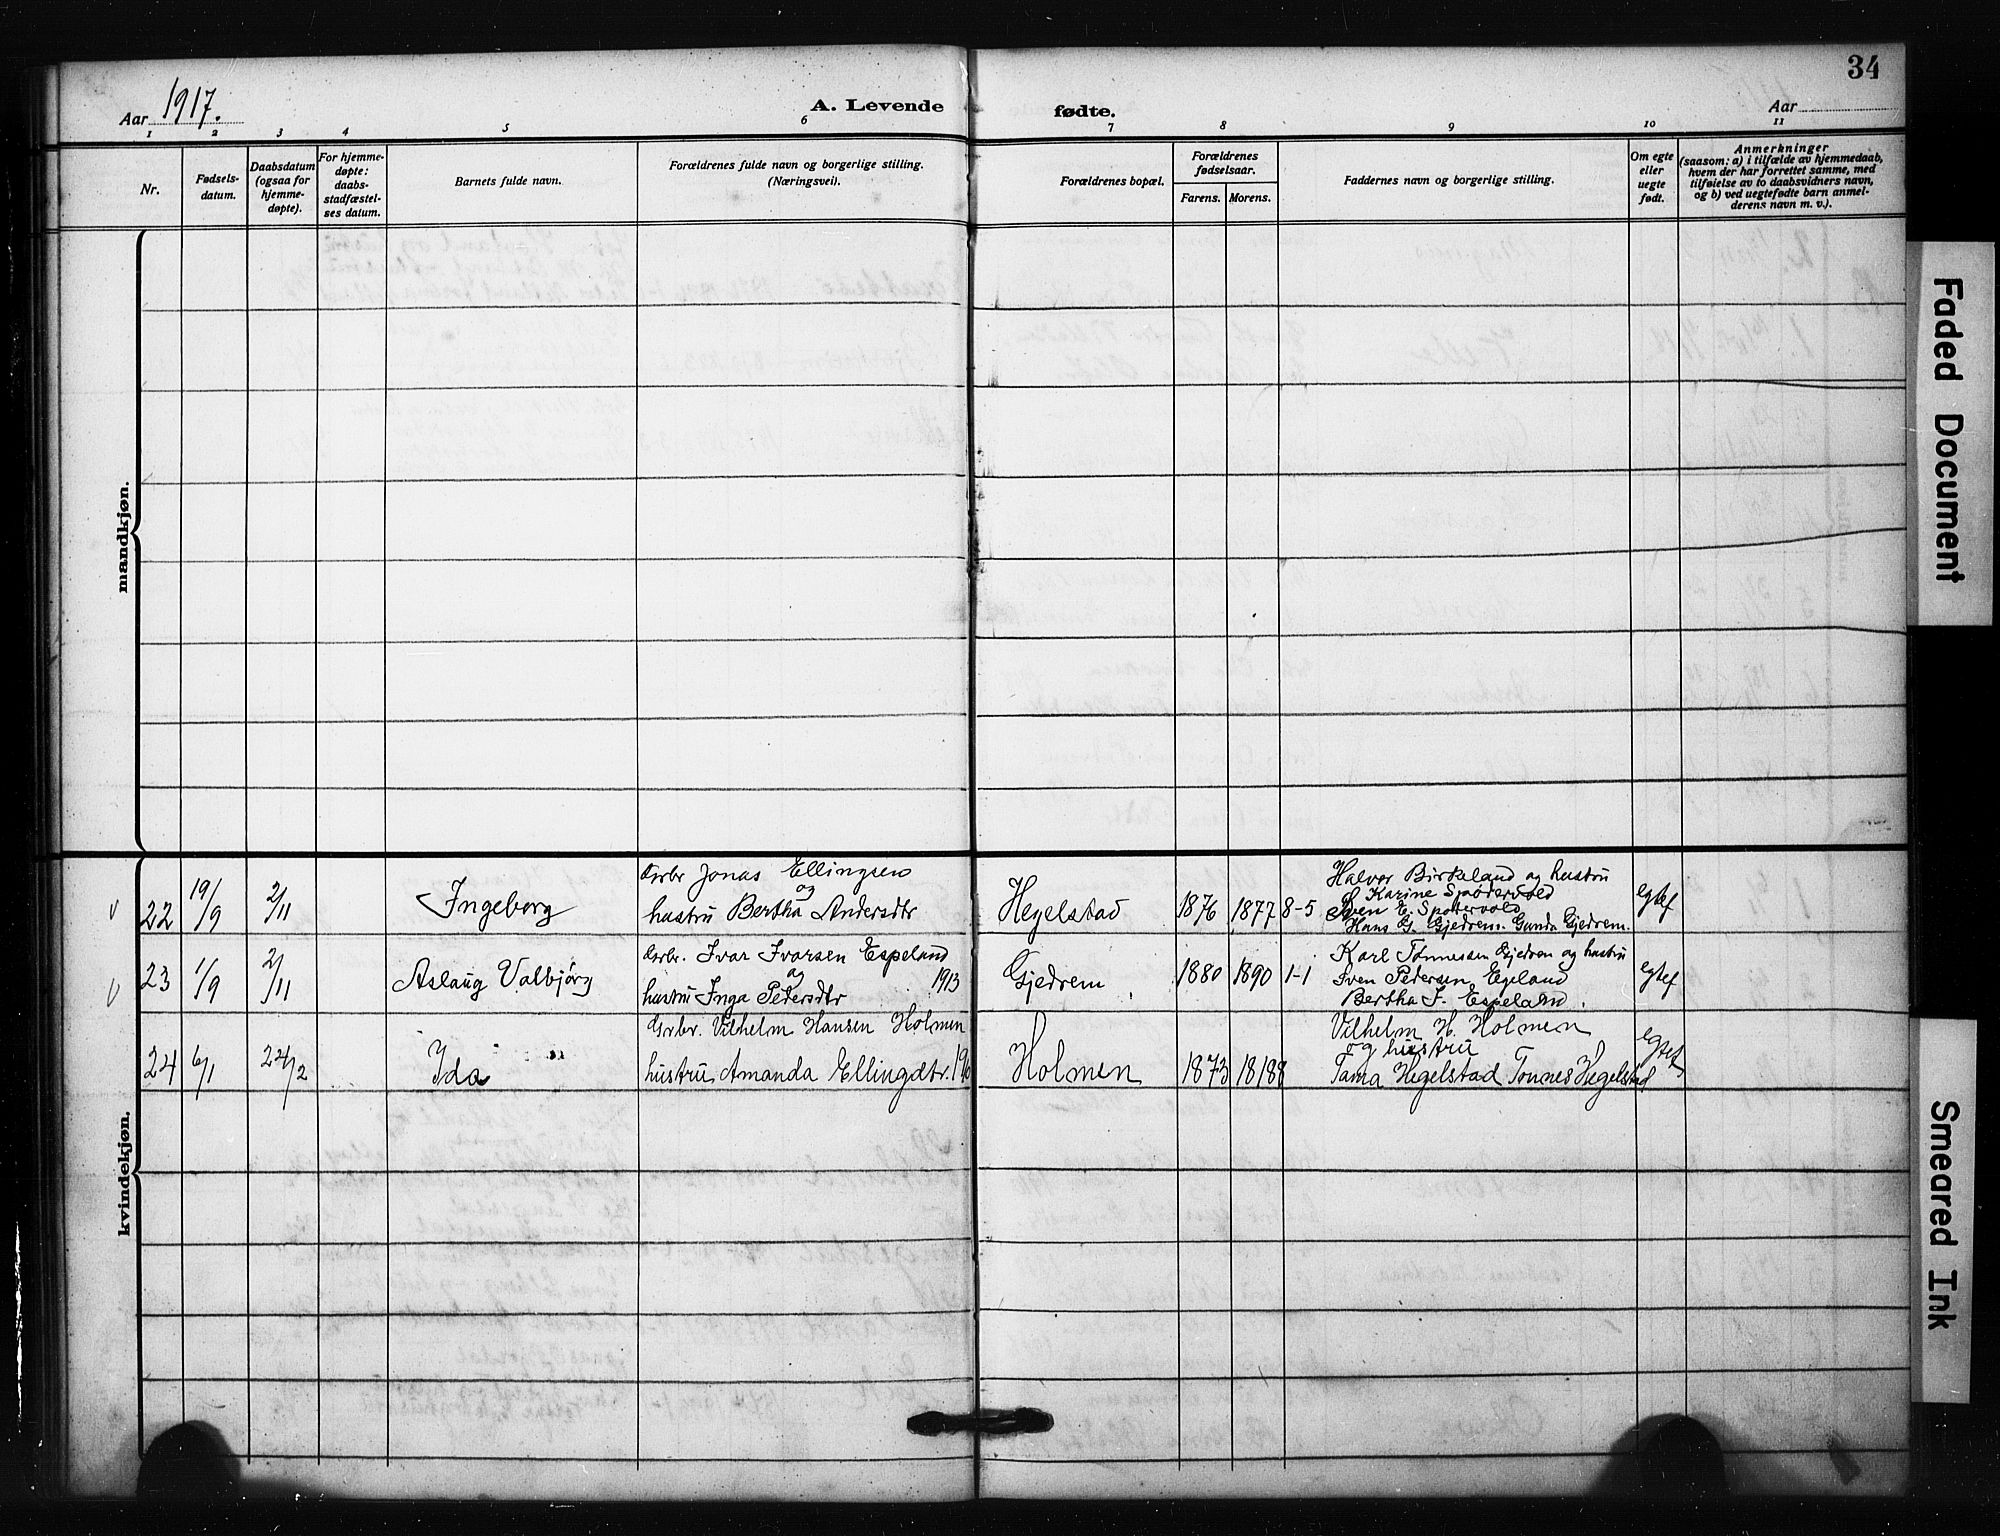 34
Aar 1917.
A. Levende fødte.
Aar
1 2 3 4 5 6 7 8 9 10 11
Nr.
Fødsels-
datum.
Daabsdatum
(ogsaa for
hjemme-
døpte).
For hjemme-
døpte:
daabs-
stadfæstel-
ses datum.
Barnets fulde navn.
Forældrenes fulde navn og borgerlige stilling.
(Næringsvei).
Forældrenes bopæl.
Forældrenes
fødselsaar.
Farens. Morens.
Faddernes navn og borgerlige stilling.
Om egte
eller
uegte
født.
Anmerkninger
(saasom: a) i tilfælde av hjemmedaab,
hvem der har forrettet samme, med
tilføielse av to daabsvidners navn,
og b) ved uegtefødte barn anmel-
derens navn m. v.).
mandkjøn.
kvindekjøn.
22 19/9 2/11 Ingeborg
Grbr Jonas Ellingsen
og
hustru Bertha Andersdtr
Hegelstad 1876 1877 8-5
Halvor Birkeland og hustru
Karine Spødervold
Sven E. Spødervold
Hans G. Gjedrem. Gunda Gjedrem.
egtef
23 1/9 2/11 Aslaug Valbjørg
Grbr. Ivar Ivarsen Espeland
og
hustru Inga Petersdtr 1913
Gjedrem 1880 1890 1-1
Karl Tønnesen Gjedrem og hustru
Sven Petersen Egeland
Bertha I. Espeland.
egtef
24 6/1 24/2 Ida
Grbr. Vilhelm Hansen Holmen
hustru Amanda Ellingsdtr.
Holmen 1873 18188
Vilhelm H. Holmen
og hustru
Tama Hegelstad Tonnes Hegelstad
egtef
Faded Document
Smeared Ink